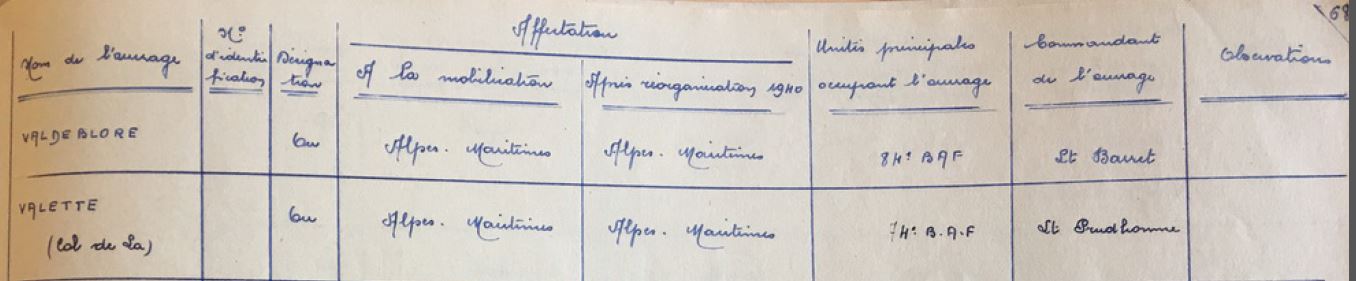 68
Affectation
Nom de l'ouvrage
N° d'identification
Désignation
A la mobilisation
Après réorganisation 1940
Unités principales occupant l'ouvrage
Commandant de l'ouvrage
Observations
VALDEBLORE
Alpes. Maritimes
Alpes. Maritimes
84e BAF
Lt Barret
VALETTE
(Col de La)
Alpes. Maritimes
Alpes. Maritimes
74e B.A.F
Lt Prudhomme